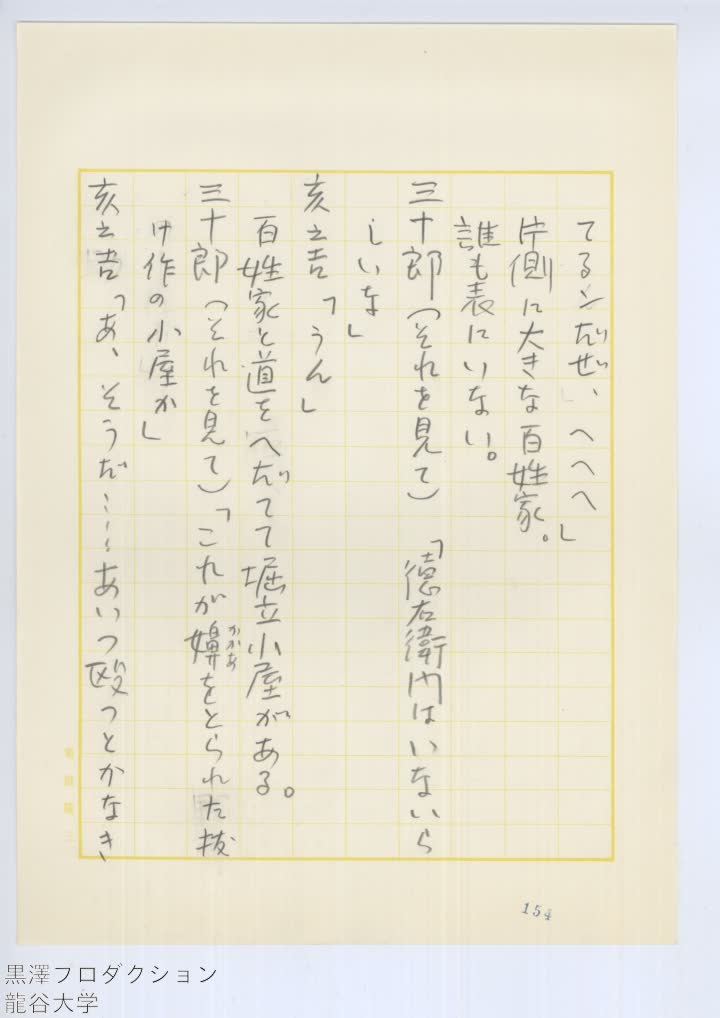 てるンだぜ、へへへ」
片側に大きな百姓家。
誰も表にいない。
三十郎(それを見て)「徳右衛門はいないら
しいな」
亥之吉「うん」
百姓家と道をへだてて堀立小屋がある。
三十郎(それを見て)「これが嬶をとられた抜
かかあ
け作の小屋か」
亥之吉「あ、そうだ……あいつ殴つとかなき
154
黒澤プロダクション
龍谷大学